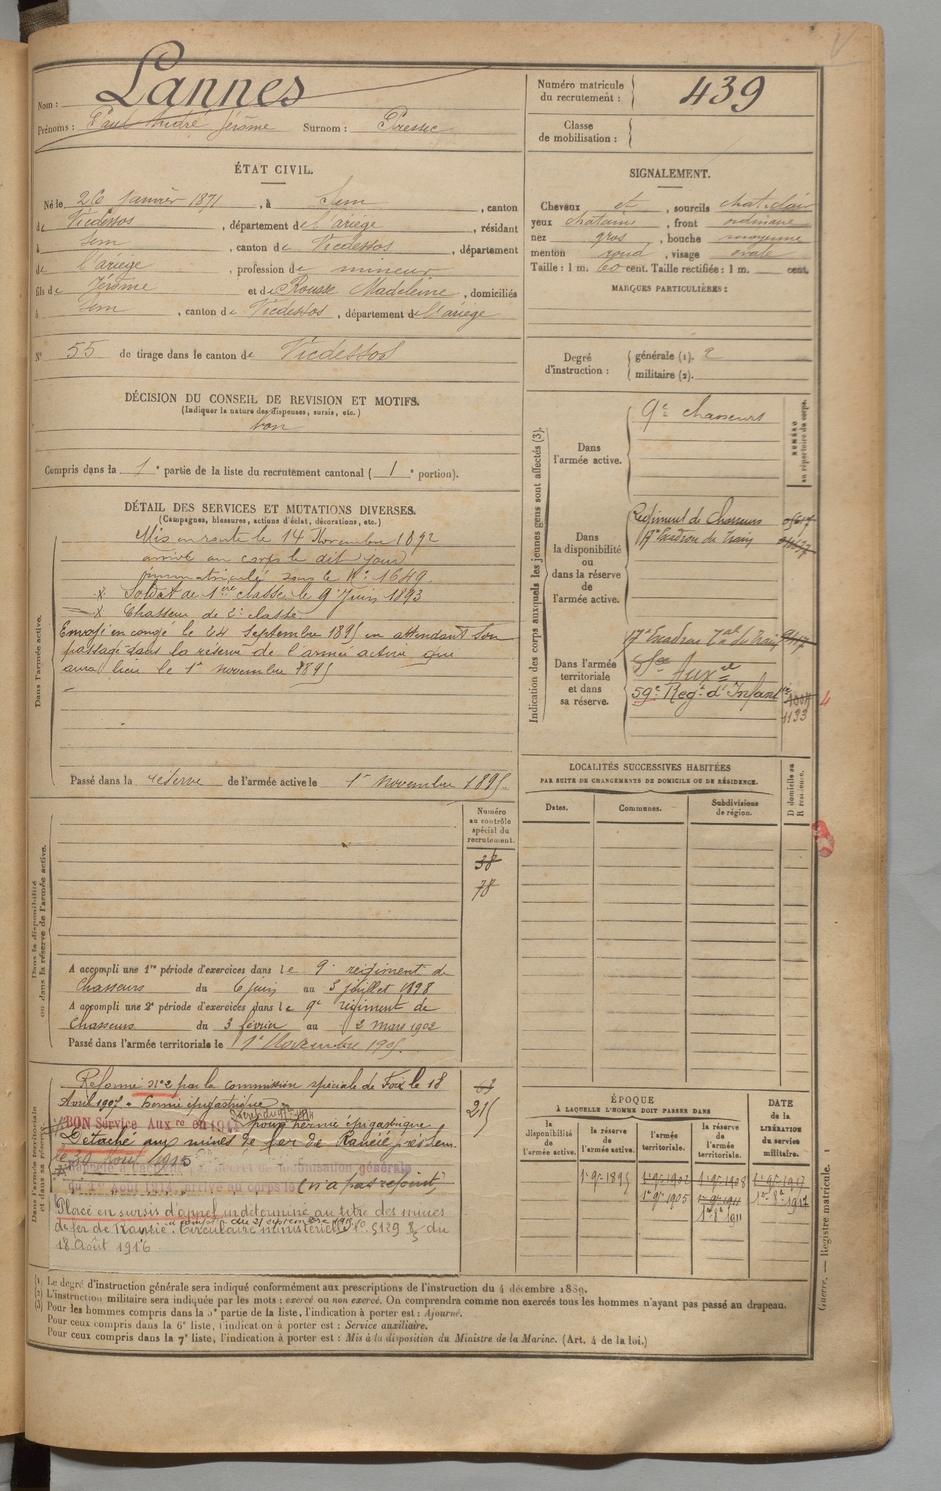 Nom : Lannes
Prénoms : Paul André Jérôme Surnom : Pressec
Numéro matricule du recrutement : 439
Classe de mobilisation :
ÉTAT CIVIL.
Né le 26 Janvier 1871, à Sem, canton
de Vicdessos, département de l'ariège, résidant
à Sem, canton de Vicdessos, département
de l'ariège, profession de mineur
fils de Jérôme et de Rousse Madeleine, domiciliés
à Sem, canton de Vicdessos, département de l'ariège
N° 55 de tirage dans le canton de Vicdessos
SIGNALEMENT.
Cheveux et, sourcils chat. clair
yeux chatains, front ordinaire
nez gros, bouche moyenne
menton rond, visage ovale
Taille : 1 m. 60 cent. Taille rectifiée : 1 m. cent.
MARQUES PARTICULIÈRES :
Degré d'instruction :
générale (1). 2
militaire (2).
DÉCISION DU CONSEIL DE REVISION ET MOTIFS.
(Indiquer la nature des dispenses, sursis, etc.)
bon
Compris dans la 1e partie de la liste du recrutement cantonal ( 1e portion).
DÉTAIL DES SERVICES ET MUTATIONS DIVERSES.
(Campagnes, blessures, actions d'éclat, décorations, etc.)
Dans l'armée active.
Mis en route le 14 Novembre 1892
arrivé au corps le dit jour
immatriculé sous le N° 1649
x Soldat de 1ère classe le 9 Juin 1893
x Chasseur de 2e classe
Envoyé en congé le 24 Septembre 1895 en attendant son
passage dans la réserve de l'armée active qui
aura lieu le 1er novembre 1895
Passé dans la réserve de l'armée active le 1er novembre 1895.
Indication des corps auxquels les jeunes gens sont affectés (3).
NUMÉRO au répertoire du corps.
Dans l'armée active.
9e chasseurs
Dans la disponibilité ou dans la réserve de l'armée active.
Régiment de Chasseurs
17e Escadron du Train
Dans l'armée territoriale et dans sa réserve.
17e Escadron Tal du Train
Sce Auxre
59e Régt d'Infantie
1133
4
LOCALITÉS SUCCESSIVES HABITÉES
PAR SUITE DE CHANGEMENTS DE DOMICILE OU DE RÉSIDENCE.
Dates. Communes. Subdivisions de région. D domicile ou R résidence.
Dans la disponibilité ou dans la réserve de l'armée active.
Numéro au contrôle spécial du recrutement.
38
78
A accompli une 1re période d'exercices dans le 9e régiment de
Chasseurs du 6 juin au 3 juillet 1898
A accompli une 2e période d'exercices dans le 9e régiment de
Chasseurs du 3 février au 2 mars 1902
Passé dans l'armée territoriale le 1er Novembre 1905.
Dans l'armée territoriale et dans sa réserve.
Réformé n°2 par la commission spéciale de Foix le 18
Avril 1907 - hernie épigastrique
BON Service Auxre en 1914 pour hernie épigastrique
Détaché aux mines de fer de Rancié près Sem.
le 29 Août 1915
Rappelé à l'activité Décret de mobilisation générale
du 1er Août 1914, arrivé au corps le (n'a pas rejoint)
Placé en sursis d'appel indéterminé au titre des mines
de fer de Rancié. Circulaire ministérielle N° 5129 du
18 Août 1916
215
ÉPOQUE
À LAQUELLE L'HOMME DOIT PASSER DANS
DATE de la LIBÉRATION du service militaire.
la disponibilité de l'armée active. la réserve de l'armée active. l'armée territoriale. la réserve de l'armée territoriale.
1er 9bre 1895 1er 9bre 1902 1er 9bre 1908 1er 9bre 1917
1er 9bre 1905 1er 9bre 1911 1er 8bre 1917
1er 8bre 1911
(1) Le degré d'instruction générale sera indiqué conformément aux prescriptions de l'instruction du 4 décembre 1889.
(2) L'instruction militaire sera indiquée par les mots : exercé ou non exercé. On comprendra comme non exercés tous les hommes n'ayant pas passé au drapeau.
(3) Pour les hommes compris dans la 5e partie de la liste, l'indication à porter est : Ajourné.
Pour ceux compris dans la 6e liste, l'indication à porter est : Service auxiliaire.
Pour ceux compris dans la 7e liste, l'indication à porter est : Mis à la disposition du Ministre de la Marine. (Art. 4 de la loi.)
Guerre. — Registre matricule. 1